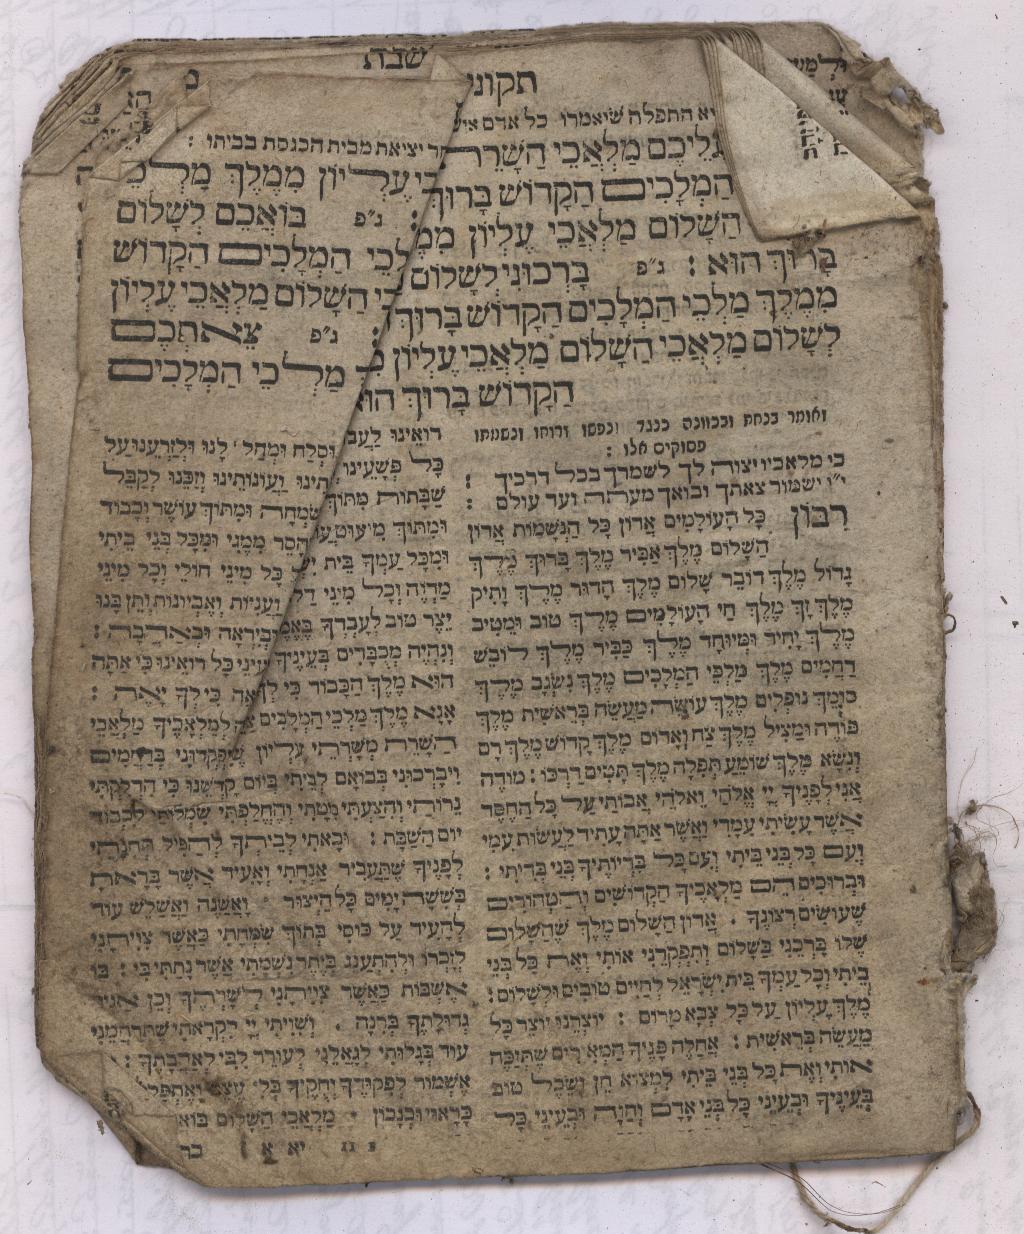 שבת
תקוני
התפלה שיאמרו כל אדם
יציאת מבית הכנסת בביתו :
עֲלֵיכֶם מַלְאֲכֵי הַשָּׁרֵת
עֶלְיוֹן מִמֶּלֶךְ מַלְכֵי
הַמְּלָכִים הַקָּדוֹשׁ בָּרוּךְ
: ג״פ בּוֹאֲכֶם לְשָׁלוֹם
הַשָּׁלוֹם מַלְאֲכֵי עֶלְיוֹן
מַלְכֵי הַמְּלָכִים הַקָּדוֹשׁ
בָּרוּךְ הוּא : ג״פ בָּרְכוּנִי לְשָׁלוֹם
הַשָּׁלוֹם מַלְאֲכֵי עֶלְיוֹן
מִמֶּלֶךְ מַלְכֵי הַמְּלָכִים הַקָּדוֹשׁ בָּרוּךְ
: ג״פ צֵאתְכֶם
לְשָׁלוֹם מַלְאֲכֵי הַשָּׁלוֹם מַלְאֲכֵי עֶלְיוֹן
מַלְכֵי הַמְּלָכִים
הַקָּדוֹשׁ בָּרוּךְ הוּא
ואומר בנחת ובכוונה כנגד ונפשו ורוחו ונשמתו
פסוקים אלו :
כי מלאכיו יצוה לך לשמרך בכל דרכיך :
י״י ישמור צאתך ובואך מעתה ועד עולם :
רִבּוֹן כָּל הָעוֹלָמִים אֲדוֹן כָּל הַנְּשָׁמוֹת אֲדוֹן
הַשָּׁלוֹם מֶלֶךְ אַבִּיר מֶלֶךְ בָּרוּךְ מֶלֶךְ
גָּדוֹל מֶלֶךְ דּוֹבֵר שָׁלוֹם מֶלֶךְ הָדוּר מֶלֶךְ וָתִיק
מֶלֶךְ זָךְ מֶלֶךְ חֵי הָעוֹלָמִים מֶלֶךְ טוֹב וּמֵטִיב
מֶלֶךְ יָחִיד וּמְיוּחָד מֶלֶךְ כַּבִּיר מֶלֶךְ לוֹבֵשׁ
רַחֲמִים מֶלֶךְ מַלְכֵי הַמְּלָכִים מֶלֶךְ נִשְׂגָּב מֶלֶךְ
סוֹמֵךְ נוֹפְלִים מֶלֶךְ עוֹשֶׂה מַעֲשֵׂה בְרֵאשִׁית מֶלֶךְ
פּוֹדֶה וּמַצִּיל מֶלֶךְ צַח וְאָדוֹם מֶלֶךְ קָדוֹשׁ מֶלֶךְ רָם
וְנִשָּׂא מֶלֶךְ שׁוֹמֵעַ תְּפִלָּה מֶלֶךְ תָּמִים דַּרְכּוֹ : מוֹדֶה
אֲנִי לְפָנֶיךָ יְיָ אֱלֹהַי וֵאלֹהֵי אֲבוֹתַי עַל כָּל הַחֶסֶד
אֲשֶׁר עָשִׂיתָ עִמָּדִי וַאֲשֶׁר אַתָּה עָתִיד לַעֲשׂוֹת עִמִּי
וְעִם כָּל בְּנֵי בֵיתִי וְעִם כָּל בְּרִיּוֹתֶיךָ בְּנֵי בְרִיתִי :
וּבְרוּכִים הֵם מַלְאָכֶיךָ הַקְּדוֹשִׁים וְהַטְּהוֹרִים
שֶׁעוֹשִׂים רְצוֹנֶךָ . אֲדוֹן הַשָּׁלוֹם מֶלֶךְ שֶׁהַשָּׁלוֹם
שֶׁלּוֹ בָּרְכֵנִי בַשָּׁלוֹם וְתִפְקְדֵנִי אוֹתִי וְאֶת כָּל בְּנֵי
בֵיתִי וְכָל עַמְּךָ בֵּית יִשְׂרָאֵל לְחַיִּים טוֹבִים וּלְשָׁלוֹם :
מֶלֶךְ עֶלְיוֹן עַל כָּל צְבָא מָרוֹם : יוֹצְרֵנוּ יוֹצֵר כָּל
מַעֲשֵׂה בְרֵאשִׁית : אֲחַלֶּה פָּנֶיךָ הַמְּאִירִים שֶׁתְּזַכֶּה
אוֹתִי וְאֶת כָּל בְּנֵי בֵיתִי לִמְצוֹא חֵן וְשֵׂכֶל טוֹב
בְּעֵינֶיךָ וּבְעֵינֵי כָּל בְּנֵי אָדָם וְחַוָּה וּבְעֵינֵי כָּל
רוֹאֵינוּ
וּסְלַח וּמְחַל לָנוּ וּלְזַרְעֵנוּ עַל
כָּל פְּשָׁעֵינוּ וַעֲוֹנוֹתֵינוּ וְזַכֵּנוּ לְקַבֵּל
שַׁבָּתוֹת מִתּוֹךְ שִׂמְחָה וּמִתּוֹךְ עוֹשֶׁר וְכָבוֹד
וּמִתּוֹךְ מִיעוּט הָסֵר מִמֶּנִּי וּמִכָּל בְּנֵי בֵיתִי
וּמִכָּל עַמְּךָ בֵּית כָּל מִינֵי חוֹלִי וְכָל מִינֵי
מַדְוֶה וְכָל מִינֵי וַעֲנִיּוּת וְאֶבְיוֹנוּת וְתֵן בָּנוּ
יֵצֶר טוֹב לְעָבְדְּךָ וּבְיִרְאָה וּבְאַהֲבָה :
וְנִהְיֶה מְכֻבָּדִים בְּעֵינֶיךָ כָּל רוֹאֵינוּ כִּי אַתָּה
הוּא מֶלֶךְ הַכָּבוֹד כִּי כִּי לְךָ יָאֶה :
אָנָּא מֶלֶךְ מַלְכֵי הַמְּלָכִים לְמַלְאָכֶיךָ מַלְאֲכֵי
הַשָּׁרֵת מְשָׁרְתֵי עֶלְיוֹן שֶׁיִּפְקְדוּנִי בְּרַחֲמִים
וִיבָרְכוּנִי בְּבוֹאָם לְבֵיתִי בְּיוֹם קָדְשֵׁנוּ כִּי הִדְלַקְתִּי
נֵרוֹתַי וְהִצַּעְתִּי מִטָּתִי וְהֶחֱלַפְתִּי שִׂמְלוֹתַי לִכְבוֹד
יוֹם הַשַּׁבָּת : וּבָאתִי לְבֵיתְךָ לְהַפִּיל תְּחִנָּתִי
לְפָנֶיךָ שֶׁתַּעֲבִיר אַנְחָתִי וְאָעִיד אֲשֶׁר בָּרָאתָ
בְּשִׁשָּׁה יָמִים כָּל הַיְצוּר וַאֲשַׁנֶּה וַאֲשַׁלֵּשׁ עוֹד
לְהָעִיד עַל כּוֹסִי בְּתוֹךְ שִׂמְחָתִי כַּאֲשֶׁר צִוִּיתַנִי
לְזָכְרוֹ וּלְהִתְעַנֵּג בְּיֶתֶר נִשְׁמָתִי אֲשֶׁר נָתַתָּ בִּי : בּוֹ
אֶשְׁבּוֹת כַּאֲשֶׁר צִוִּיתַנִי לְשָׁרְתֶךָ וְכֵן אַגִּיד
גְּדוּלָתְךָ בְּרִנָּה . וְשִׁוִּיתִי יְיָ לִקְרָאתִי שֶׁתְּרַחֲמֵנִי
עוֹד בְּגָלוּתִי לְגָאֳלֵנִי לְעוֹרֵר לִבִּי לְאַהֲבָתֶךָ :
אֶשְׁמוֹר לִפְקוּדֶיךָ וְחֻקֶּיךָ בְּלִי עֶצֶב וְאֶתְפַּלֵּל
כָּרָאוּי וּכְנָכוֹן מַלְאֲכֵי הַשָּׁלוֹם בּוֹאֲ
יא א
כר